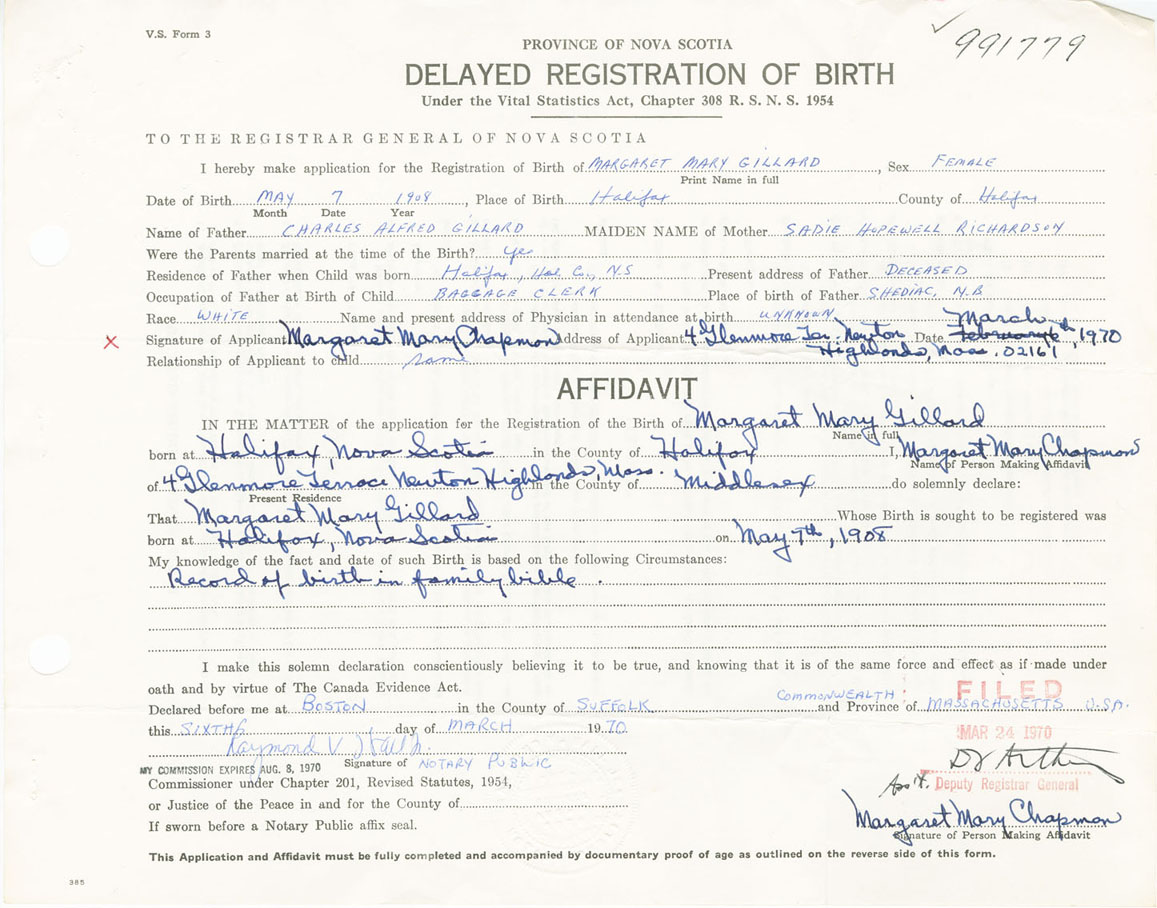 V.S. Form 3
991779
PROVINCE OF NOVA SCOTIA
DELAYED REGISTRATION OF BIRTH
Under the Vital Statistics Act, Chapter 308 R. S. N. S. 1954
TO THE REGISTRAR GENERAL OF NOVA SCOTIA
I hereby make application for the Registration of Birth of MARGARET MARY GILLARD, Sex FEMALE
Print Name in full
Date of Birth MAY 7 1908, Place of Birth Halifax County of Halifax
Month Date Year
Name of Father CHARLES ALFRED GILLARD MAIDEN NAME of Mother SADIE HOPEWELL RICHARDSON
Were the Parents married at the time of the Birth? Yes
Residence of Father when Child was born Halifax, Hal. Co., N.S Present address of Father DECEASED
Occupation of Father at Birth of Child BAGGAGE CLERK Place of birth of Father SHEDIAC, N.B
Race WHITE Name and present address of Physician in attendance at birth UNKNOWN March
X Signature of Applicant Margaret Mary Chapman Address of Applicant 4 Glenmore Ter. Newton Date February 6th, 1970
Highlands, Mass. 02161
Relationship of Applicant to child same
AFFIDAVIT
IN THE MATTER of the application for the Registration of the Birth of Margaret Mary Gillard
Name in full
born at Halifax, Nova Scotia in the County of Halifax I, Margaret Mary Chapman
Name of Person Making Affidavit
of 4 Glenmore Terrace Newton Highlands, Mass. in the County of Middlesex do solemnly declare:
Present Residence
That Margaret Mary Gillard Whose Birth is sought to be registered was
born at Halifax, Nova Scotia on May 7th, 1908
My knowledge of the fact and date of such Birth is based on the following Circumstances:
Record of birth in family bible.
I make this solemn declaration conscientiously believing it to be true, and knowing that it is of the same force and effect as if made under
oath and by virtue of The Canada Evidence Act.
FILED
Declared before me at BOSTON in the County of SUFFOLK COMMONWEALTH: and Province of MASSACHUSETTS U.S.A.
this SIXTH day of MARCH 1970
MAR 24 1970
Raymond V
Signature of NOTARY PUBLIC
MY COMMISSION EXPIRES AUG. 8, 1970
Commissioner under Chapter 201, Revised Statutes, 1954,
Ass't. Deputy Registrar General
or Justice of the Peace in and for the County of
Margaret Mary Chapman
If sworn before a Notary Public affix seal.
Signature of Person Making Affidavit
This Application and Affidavit must be fully completed and accompanied by documentary proof of age as outlined on the reverse side of this form.
385